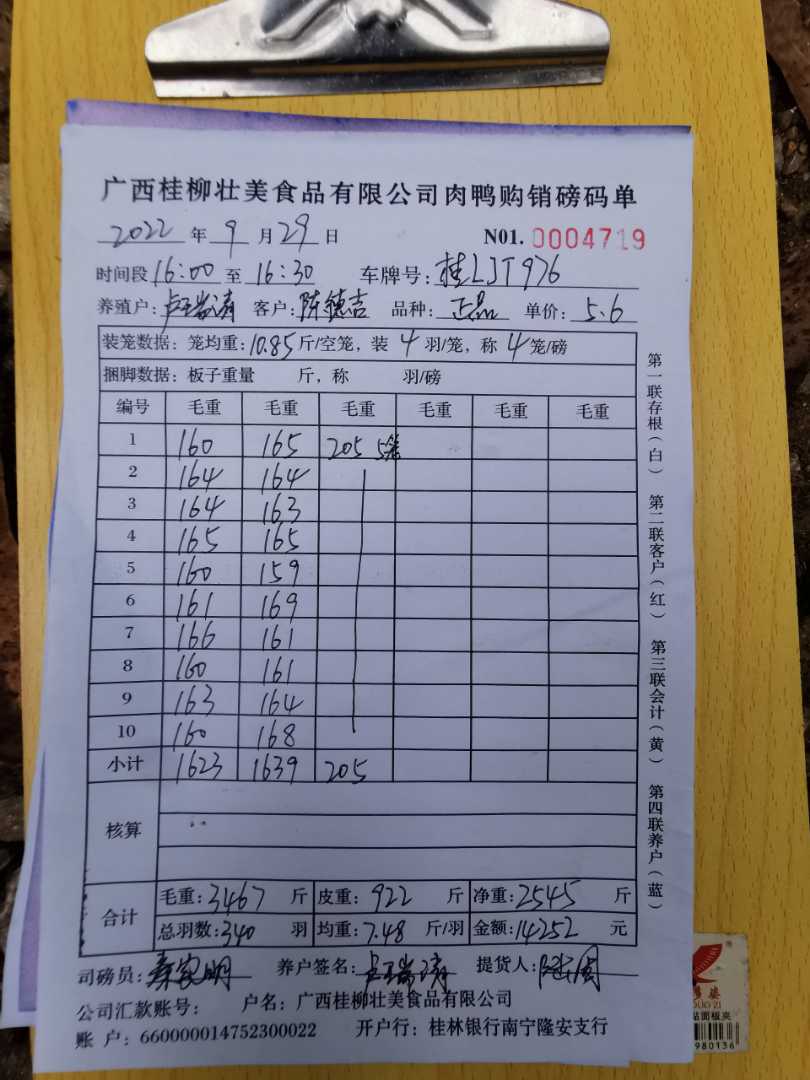 广西桂柳壮美食品有限公司肉鸭购销磅码单
2022 年 9 月 29 日 N01. 0004719
时间段 16:00 至 16:30 车牌号: 桂LJT976
养殖户: 客户: 陈德吉 品种: 正品 单价: 5.6
装笼数据: 笼均重: 10.85 斤/空笼, 装 4 羽/笼, 称 4 笼/磅
捆脚数据: 板子重量 斤, 称 羽/磅
编号 毛重 毛重 毛重 毛重 毛重 毛重
1 160 165 205 5笼
2 164 164
3 164 163
4 165 165
5 160 159
6 161 169
7 166 161
8 160 161
9 163 164
10 160 168
小计 1623 1639 205
核算
合计 毛重: 3467 斤 皮重: 922 斤 净重: 2545 斤
总羽数: 340 羽 均重: 7.48 斤/羽 金额: 14252 元
司磅员: 养户签名: 提货人:
公司汇款账号: 户名: 广西桂柳壮美食品有限公司
账 户: 660000014752300022 开户行: 桂林银行南宁隆安支行
第一联存根(白) 第二联客户(红) 第三联会计(黄) 第四联养户(蓝)
980136